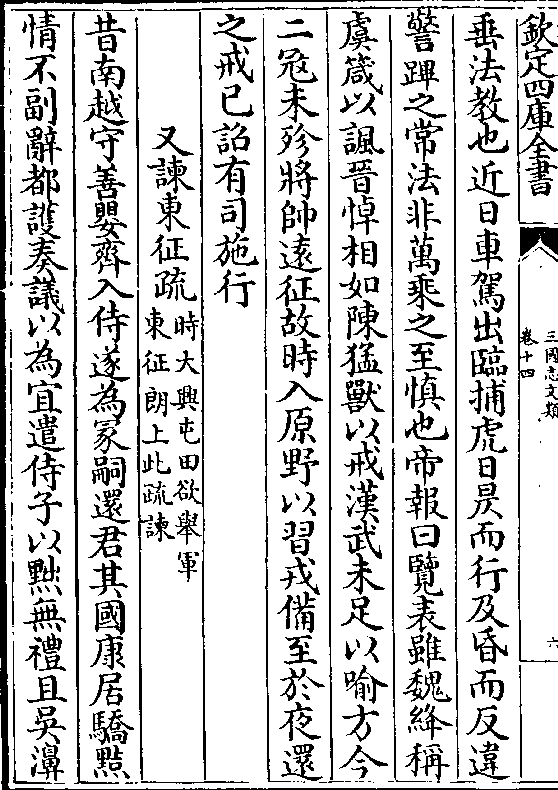 欽定四庫全書
三國志文類
卷十四
六
垂法教也近日車駕出臨捕虎日昃而行及昏而反違
警蹕之常法非萬乗之至慎也帝報曰覽表雖魏絳稱
虞箴以諷晉悼相如陳猛獸以戒漢武未足以喻方今
二冦未殄將帥遠征故時入原野以習戎備至於夜還
之戒已詔有司施行
又諫東征疏時大興屯田欲舉軍
東征朗上此疏諫
昔南越守善嬰齊入侍遂為冡嗣還君其國康居驕黠
情不副辭都護奏議以為宜遣侍子以黜無禮且吳濞